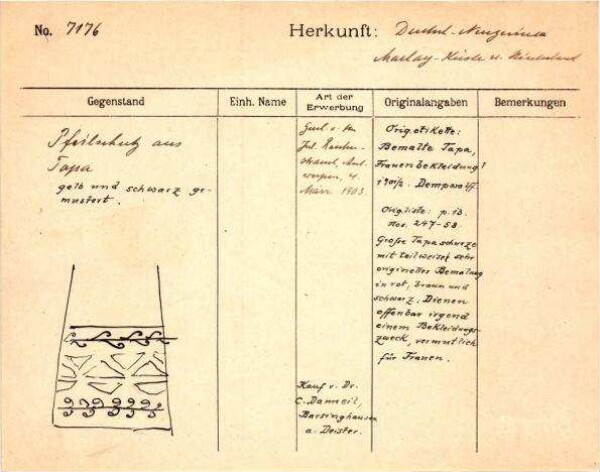 No. 7176
Herkunft: Deutsch-Neuguinea
Maclay-Küste u. Hinterland
Gegenstand
Einh. Name
Art der Erwerbung
Originalangaben
Bemerkungen
Pfeilschutz aus
Tapa
gelb und schwarz ge-
mustert.
werpen, 4.
März 1903.
Kauf v. Dr.
C. Danneil,
Barsinghausen
a. Deister.
Orig. etikette:
Bemalte Tapa,
Frauenbekleidung!
Orig. liste: p. 13.
nos. 247-58
Große Tapaschurze
mit teilweise sehr
origineller Bemalung
in rot, braun und
schwarz. Dienen
offenbar irgend
einem Bekleidungs-
zweck, vermutlich
für Frauen.